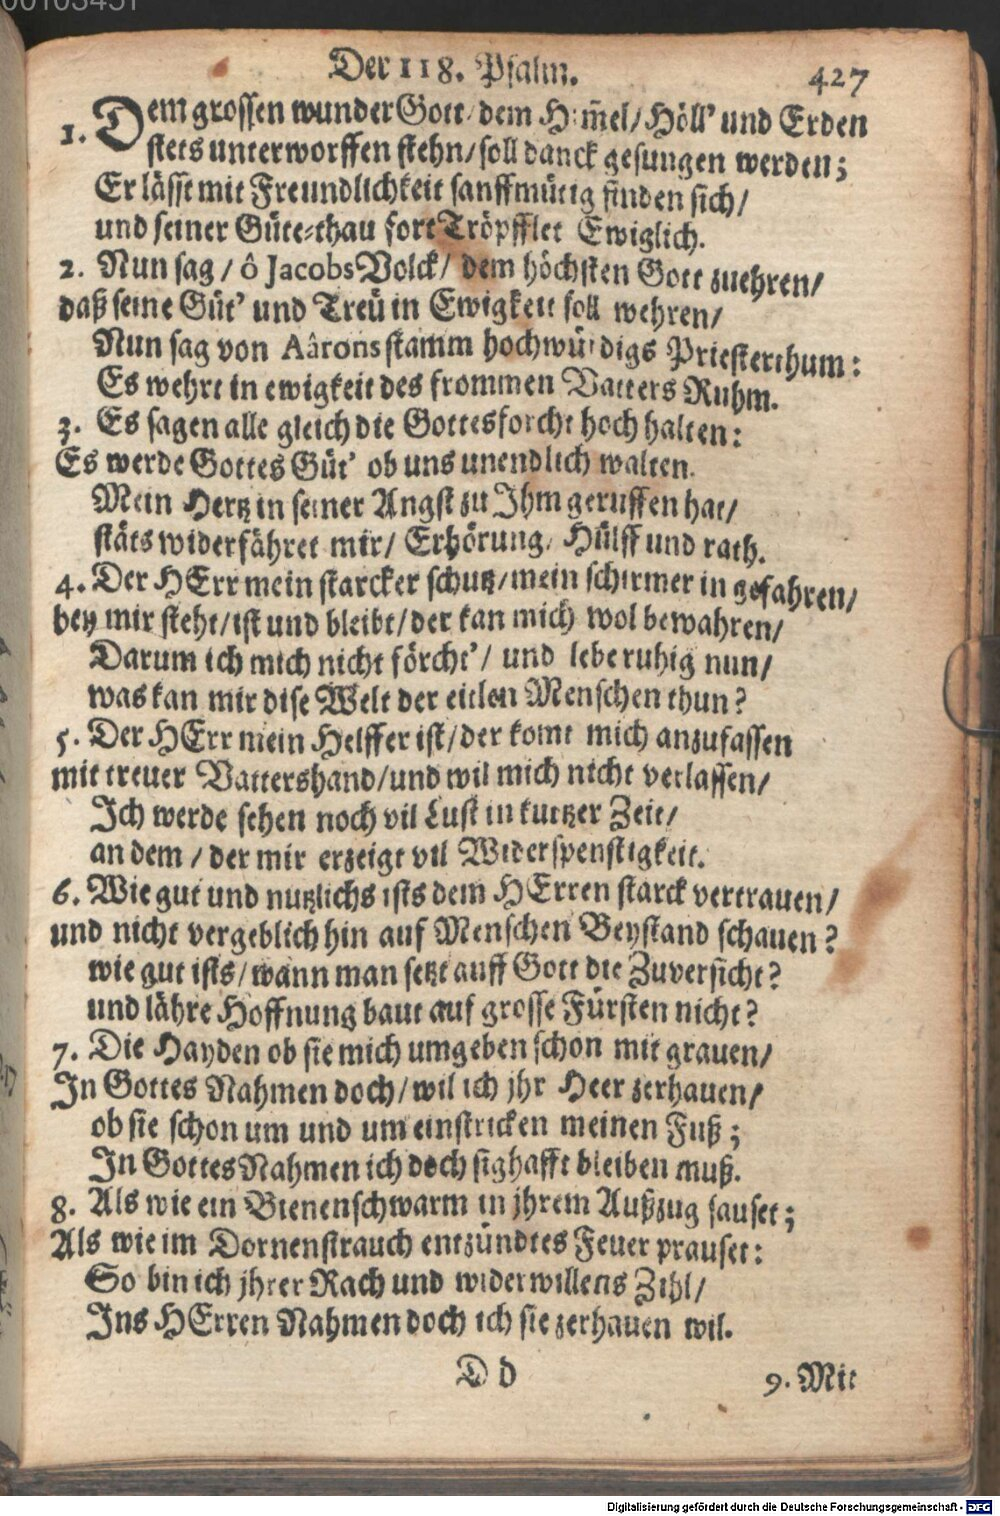 Der 118. Psalm. 427
1. Dem grossen wunder Gott/ dem Him̃el/ Höll' und Erden
stets unterworffen stehn/ soll danck gesungen werden;
Er lässt mit Freundlichkeit sanffmütig finden sich/
und seiner Güte-thau fort Tröpfflet Ewiglich.
2. Nun sag / ô Jacobs Volck/ dem höchsten Gott zuehren/
daß seine Güt' und Treü in Ewigkeit soll wehren/
Nun sag von Aârons stamm hochwürdigs Priesterthum:
Es wehrt in ewigkeit des frommen Vatters Ruhm.
3. Es sagen alle gleich die Gottesforcht hoch halten:
Es werde Gottes Güt' ob uns unendlich walten.
Mein Hertz in seiner Angst zu Ihm geruffen hat/
stäts widerfähret mir/ Erhörung, Hülff und rath.
4. Der HErr mein starcker schutz/ mein schirmer in gefahren/
bey mir steht/ ist und bleibt/ der kan mich wol bewahren/
Darum ich mich nicht förcht'/ und lebe ruhig nun/
was kan mir dise Welt der eitlen Menschen thun?
5. Der HErr mein Helffer ist/ der komt mich anzufassen
mit treuer Vattershand/ und wil mich nicht verlassen/
Ich werde sehen noch vil Lust in kurtzer Zeit/
an dem / der mir erzeigt vil Widerspenstigkeit.
6. Wie gut und nutzlichs ists dem HErren starck vertrauen/
und nicht vergeblich hin auf Menschen Beystand schauen?
wie gut ists/ wann man setzt auff Gott die Zuversicht?
und lähre Hoffnung baut auf grosse Fürsten nicht?
7. Die Hayden ob sie mich umgeben schon mit grauen/
In Gottes Nahmen doch/ wil ich jhr Heer zerhauen/
ob sie schon um und um einstricken meinen Fuß;
In Gottes Nahmen ich doch sighafft bleiben muß.
8. Als wie ein Bienenschwarm in jhrem Außzug sauset;
Als wie im Dornenstrauch entzündtes Feuer prauset:
So bin ich jhrer Rach und widerwillens Zihl/
Ins HErren Nahmen doch ich sie zerhauen wil.
D d 9. Mit
Digitalisierung gefördert durch die Deutsche Forschungsgemeinschaft - DFG